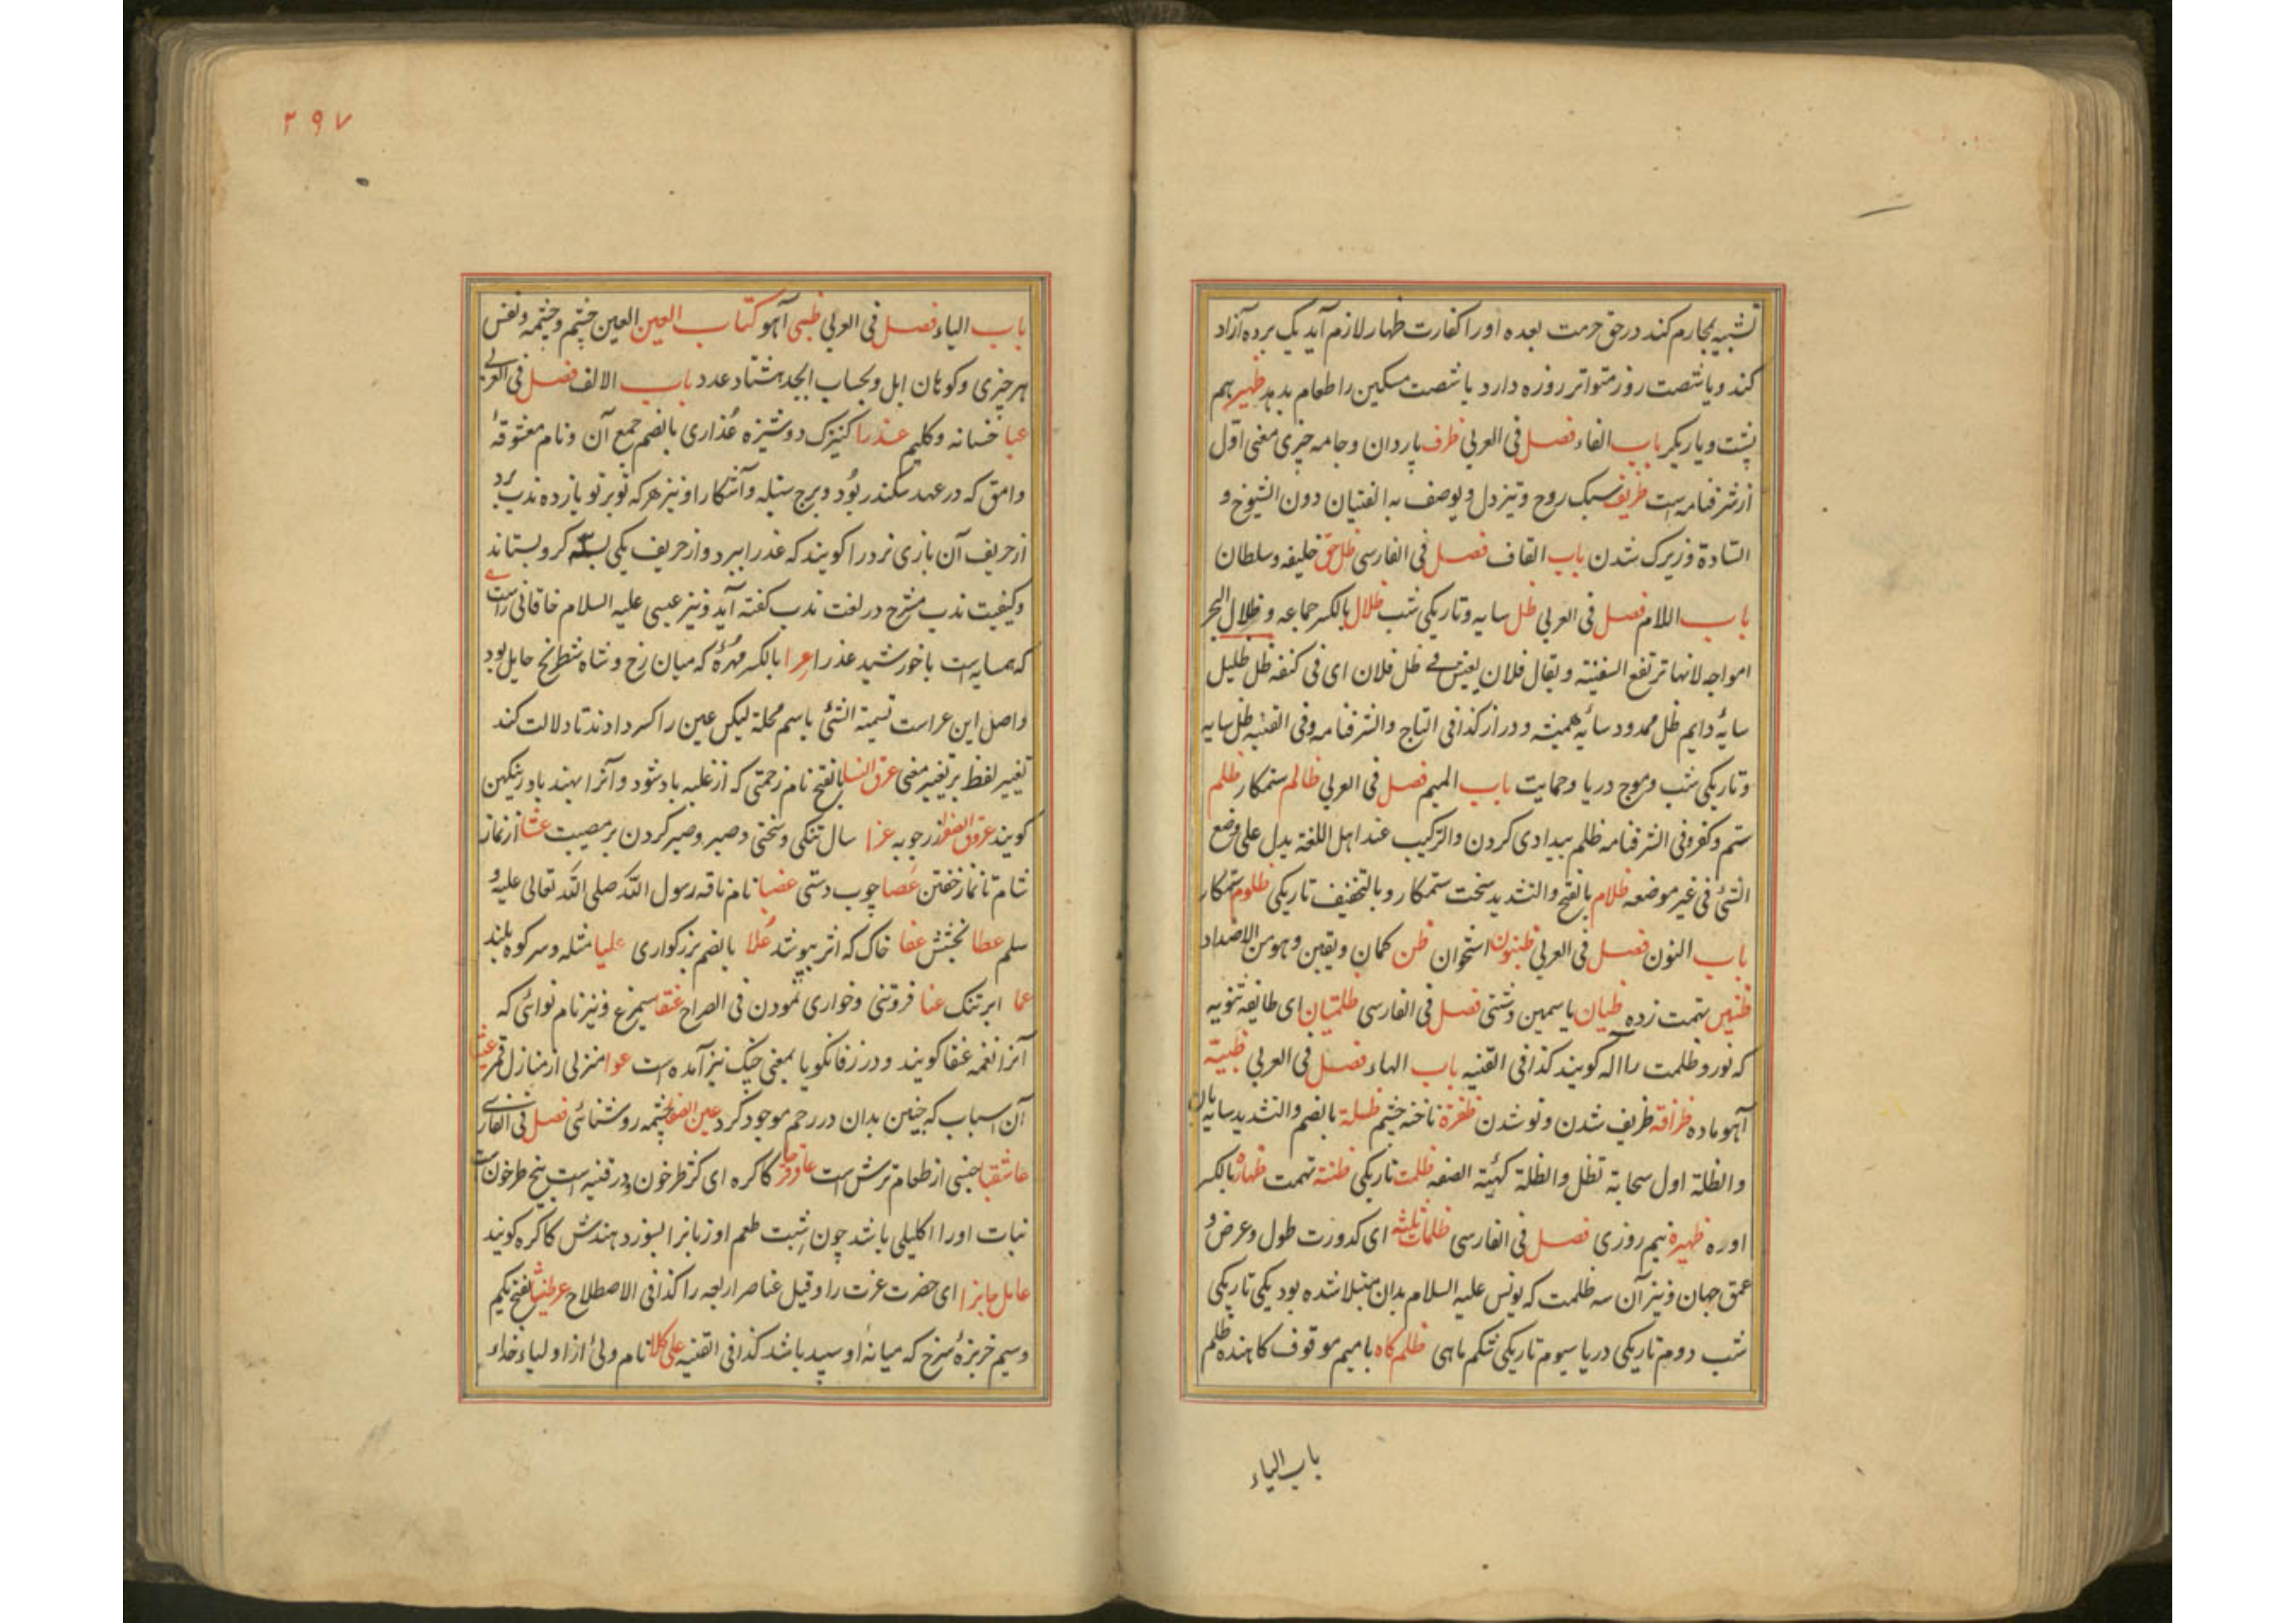 تشبیه بمحارم کند در حق حرمت بعده او را کفارت ظهار لازم آید یک برده آزاد
کند و یا شصت روز متواتر روزه دارد یا شصت مسکین را طعام بدهد ظهیر هم
پشت و یاریگر باب الفاء فصل فی العربی ظرف باردان و جامه چیزی معنی اول
از شرفنامه است ظریف سبک روح و تیزدل و یوصف به الفتیان دون الشیوخ و
السادة و زیرک شدن باب القاف فصل فی الفارسی ظل حق خلیفه و سلطان
باب اللام فصل فی العربی ظل سایه و تاریکی شب ظلال بالکسر جماعه و ظلال البحر
امواجه لانها ترتفع السفینة و یقال فلان یعیش فی ظل فلان ای فی کنفه ظل ظلیل
سایۀ دایم ظل ممدود سایۀ همیشه و دراز کذا فی التاج والشرفنامه و فی القنیه ظل سایه
و تاریکی شب و موج دریا و حمایت باب المیم فصل فی العربی ظالم ستمکار ظلم
ستم و کفر و فی الشرفنامه ظلم بیدادی کردن والترکیب عند اهل اللغة یدل علی وضع
الشئ فی غیر موضعه ظلام بالفتح والتشدید سخت ستمکار و بالتخفیف تاریکی ظلوم ستمکار
باب النون فصل فی العربی ظنبون استخوان ظن گمان و یقین و هو من الاضداد
ظنین تهمت زده ظیان یاسمین دشتی فصل فی الفارسی ظلمتیان ای طایفه ثنویه
که نور و ظلمت را اله گویند کذا فی القنیه باب الهاء فصل فی العربی ظبیة
آهو ماده ظرافة ظریف شدن و نو شدن ظفرة ناخنه چشم ظلة بالضم والتشدید سایه بان
والظلة اول سحابة تظل والظلة کهیئة الصفه ظلمت تاریکی ظنة تهمت ظهارة بالکسر
اوره ظهیرة نیم روزی فصل فی الفارسی ظلمات ثلثه ای کدورت طول و عرض و
عمق جهان و نیز آن سه ظلمت که یونس علیه السلام بدان مبتلا شده بود یکی تاریکی
شب دوم تاریکی دریا سیوم تاریکی شکم ماهی ظلم کاه با میم موقوف کاهنده ظلم
باب الیاء
۲۹۷
باب الیاء فصل فی العربی ظبی آهو کتاب العین العین چشم و چشمه و نفس
هر چیزی و کوهان ابل و بحساب ابجد هشتاد عدد باب الالف فصل فی العربی
عبا خسانه و گلیم عذرا کنیزک دوشیزه عذاری بالضم جمع آن و نام معشوقۀ
وامق که در عهد سکندر بود و برج سنبله و آشکارا و نیز هر که نوبر نو یازده ندب برد
از حریف آن بازی نرد را گویند که عذرا ببرد و از حریف یکی بسه گرو بستاند
و کیفیت ندب مشرح در لغت ندب گفته آید و نیز عیسی علیه السلام خاقانی راست
که همسایه است با خورشید عذرا عرا بالکسر مهرۀ که میان رخ و شاه شطرنج حایل بود
و اصل این عراست تسمیة الشئ باسم محله لیکن عین را کسر دادند تا دلالت کند
تغییر لفظ بر تغییر معنی عرق النسا بالفتح نام زحمتی که از غلبه باد شود و آنرا بهند باد رینگهن
گویند عروق الصفر زرچوبه عزا سال تنگی و سختی و صبر و صبر کردن بر مصیبت عشا از نماز
شام تا نماز خفتن عصا چوب دستی عضبا نام ناقه رسول الله صلی الله تعالی علیه و
سلم عطا بخشش عفا خاک که اثر بپوشد علا بالضم بزرگواری علیا مثله و سر کوه بلند
عما ابر تنک عنا فروتنی و خواری نمودن فی الصراح عنقا سیمرغ و نیز نام نوائی که
آنرا نغمه عنقا گویند و در زفانگویا بمعنی چنگ نیز آمده است عوا منزلی از منازل قمر
آن اسباب که جنین بدان در رحم موجود گردد عین الصفا چشمه روشنائی فصل فی الفارسی
عاشقبا جنسی از طعام ترش است عاقرقرحا کاکره ای کژ طرخون و در قنیه است بیخ طرخون است
نبات او را اکلیلی باشد چون شبت طعم او زبان را بسوزد هندش کاکره گویند
عامل جانرا ای حضرت عزت را و قیل عناصر اربعه را کذا فی الاصطلاح عرطنیثا بفتح یکم
و سیم خربزۀ سرخ که میانۀ او سپید باشد کذا فی القنیه علی کلا نام ولئ از اولیاء خداء